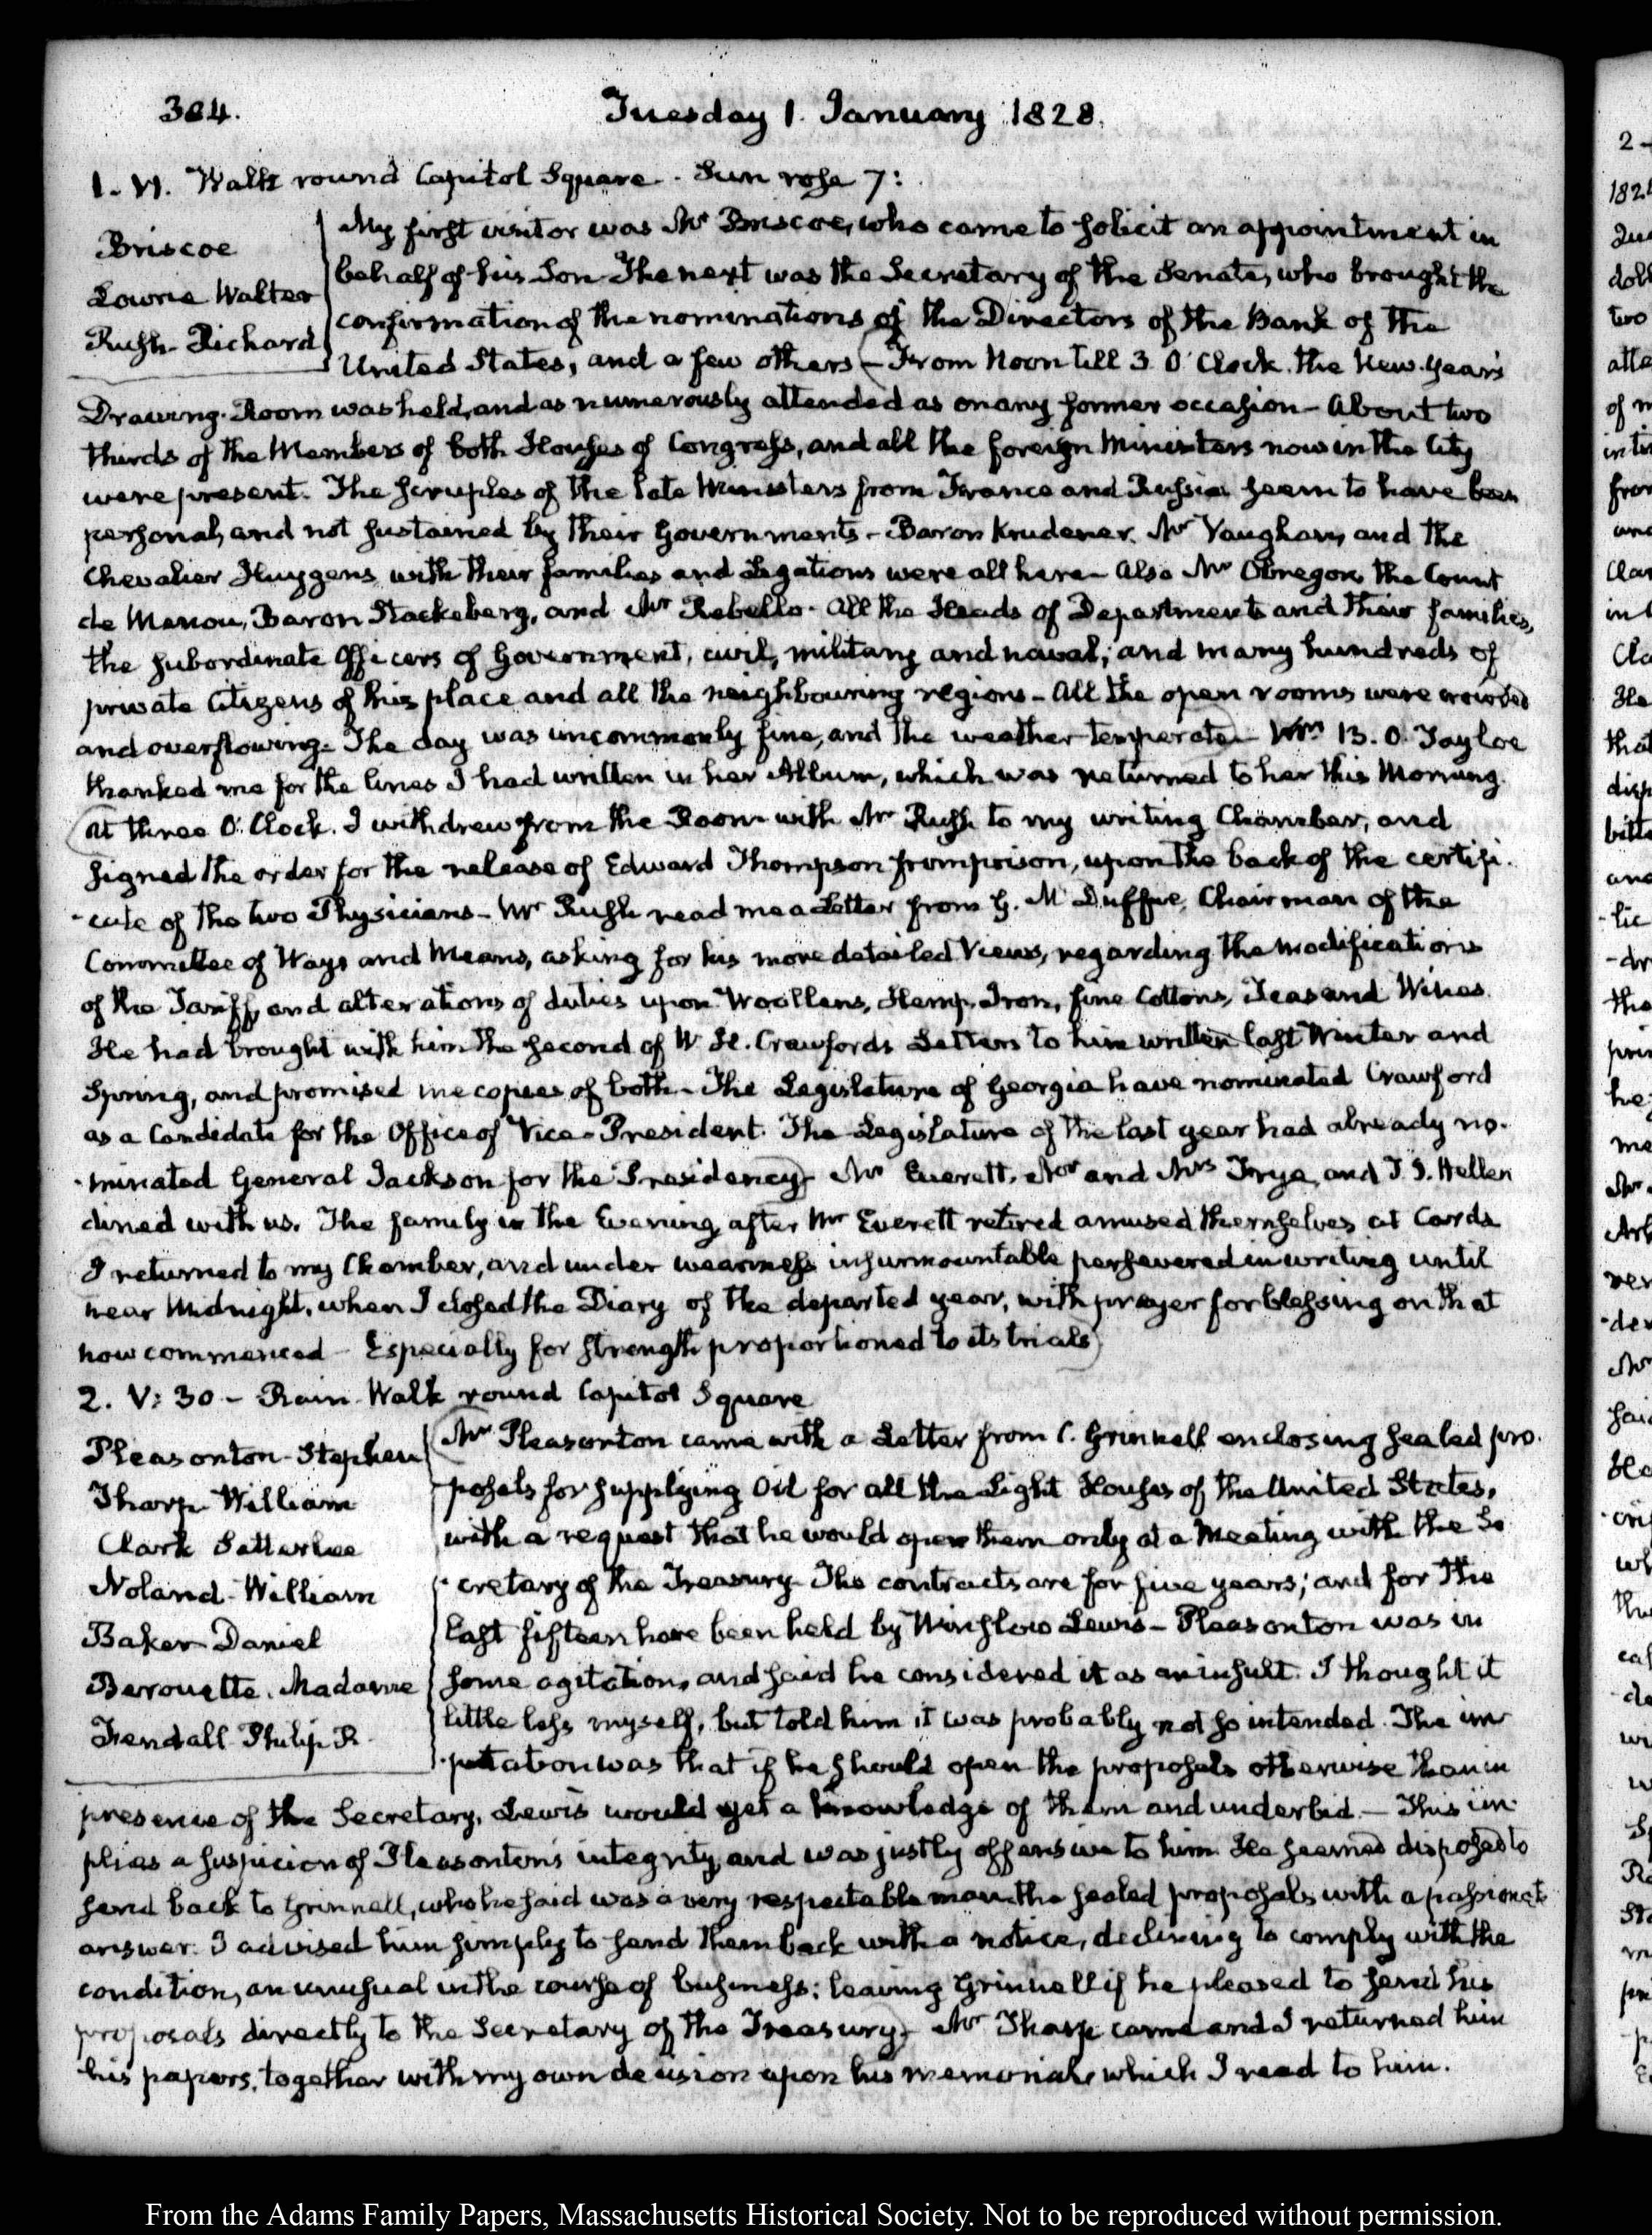 304.
Tuesday 1. January 1828.
1. VI. Walk round Capitol Square. Sun rose 7:
Briscoe
Lowrie Walter
Rush Richard
My first visitor was Mr Briscoe, who came to solicit an appointment in
behalf of his Son. The next was the Secretary of the Senate, who brought the
confirmation of the nominations of the Directors of the Bank of the
United States, and a few others – From Noon till 3 O'Clock. the New-Year's
Drawing-Room was held, and as numerously attended as on any former occasion – About two
thirds of the Members of both Houses of Congress, and all the foreign Ministers now in the City
were present. The scruples of the late Ministers from France and Russia seem to have been
personal, and not sustained by their Governments – Baron Krudener, Mr Vaughan, and the
Chevalier Huygens, with their families and Legations were all here – Also Mr Obregon, the Count
de Menou, Baron Stackelberg, and Mr Rebello. All the Heads of Departments and their families,
the subordinate Officers of Government, civil, military and naval; and many hundreds of
private Citizens of this place and all the neighbouring regions – All the open rooms were crowded
and overflowing. The day was uncommonly fine, and the weather temperate – Mrs B. O. Tayloe
thanked me for the lines I had written in her Album, which was returned to her this Morning.
At three O'Clock. I withdrew from the Room with Mr Rush to my writing Chamber, and
signed the order for the release of Edward Thompson from prison, upon the back of the certifi-
-cate of the two Physicians – Mr Rush read me a Letter from G. McDuffie, Chairman of the
Committee of Ways and Means, asking for his more detailed Views, regarding the modifications
of the Tariff, and alterations of duties upon Woollens, Hemp, Iron, fine Cottons, Teas and Wines.
He had brought with him the second of W. H. Crawfords Letters to him written last Winter and
Spring, and promised me copies of both – The Legislature of Georgia have nominated Crawford
as a Candidate for the Office of Vice-President. The Legislature of the last year had already no-
-minated General Jackson for the Presidency – Mr Everett, Mr and Mrs Frye, and J. J. Hellen
dined with us. The family in the Evening, after Mr Everett retired amused themselves at Cards
I returned to my Chamber, and under weariness insurmountable persevered in writing until
near Midnight, when I closed the Diary of the departed year, with prayer for blessing on that
now commenced – Especially for strength proportioned to its trials
2. V: 30 – Rain. Walk round Capitol Square
Pleasonton-Stephen
Tharp William
Clark Satterlee
Noland-William
Baker Daniel
Berouette, Madame
Fendall-Philip R.
Mr Pleasonton came with a Letter from C. Grinnell enclosing sealed pro-
posals for supplying Oil for all the Light Houses of the United States,
with a request that he would open them only at a Meeting with the Se
-cretary of the Treasury – The contracts are for five years; and for the
last fifteen have been held by Winslow Lewis – Pleasonton was in
some agitation, and said he considered it as an insult. I thought it
little less myself, but told him it was probably not so intended. The im
-putation was that if he should open the proposals otherwise than in
presence of the Secretary, Lewis would get a knowledge of them and underbid. – This im-
plies a suspicion of Pleasonton's integrity, and was justly offensive to him. He seemed disposed to
send back to Grinnell, who he said was a very respectable man the sealed proposals with a passionate
answer. I advised him simply to send them back with a notice, declining to comply with the
condition, as unusual in the course of business; leaving Grinnell if he pleased to send his
proposals directly to the Secretary of the Treasury – Mr Tharp came and I returned him
his papers, together with my own decision upon his memorial, which I read to him.
From the Adams Family Papers, Massachusetts Historical Society. Not to be reproduced without permission.